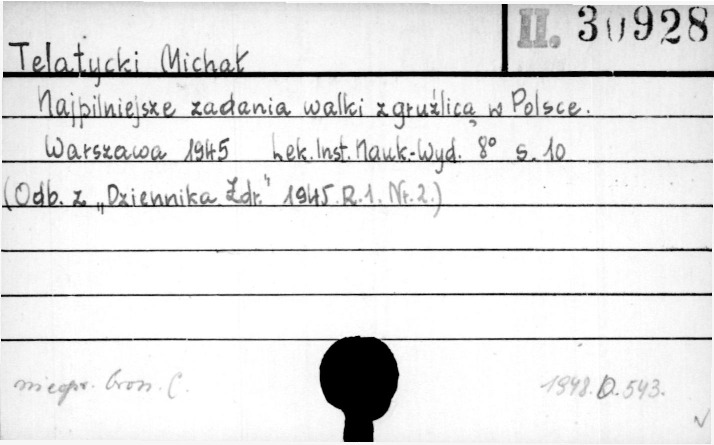 II. 30928
Telatycki Michał
Najpilniejsze zadania walki z gruźlicą w Polsce.
Warszawa 1945 Lek. Inst. Nauk.-Wyd. 8° s. 10
(Odb. z „Dziennika Zdr." 1945. R. 1. Nr. 2.)
nieopr. bron. C. 1948. D. 543.